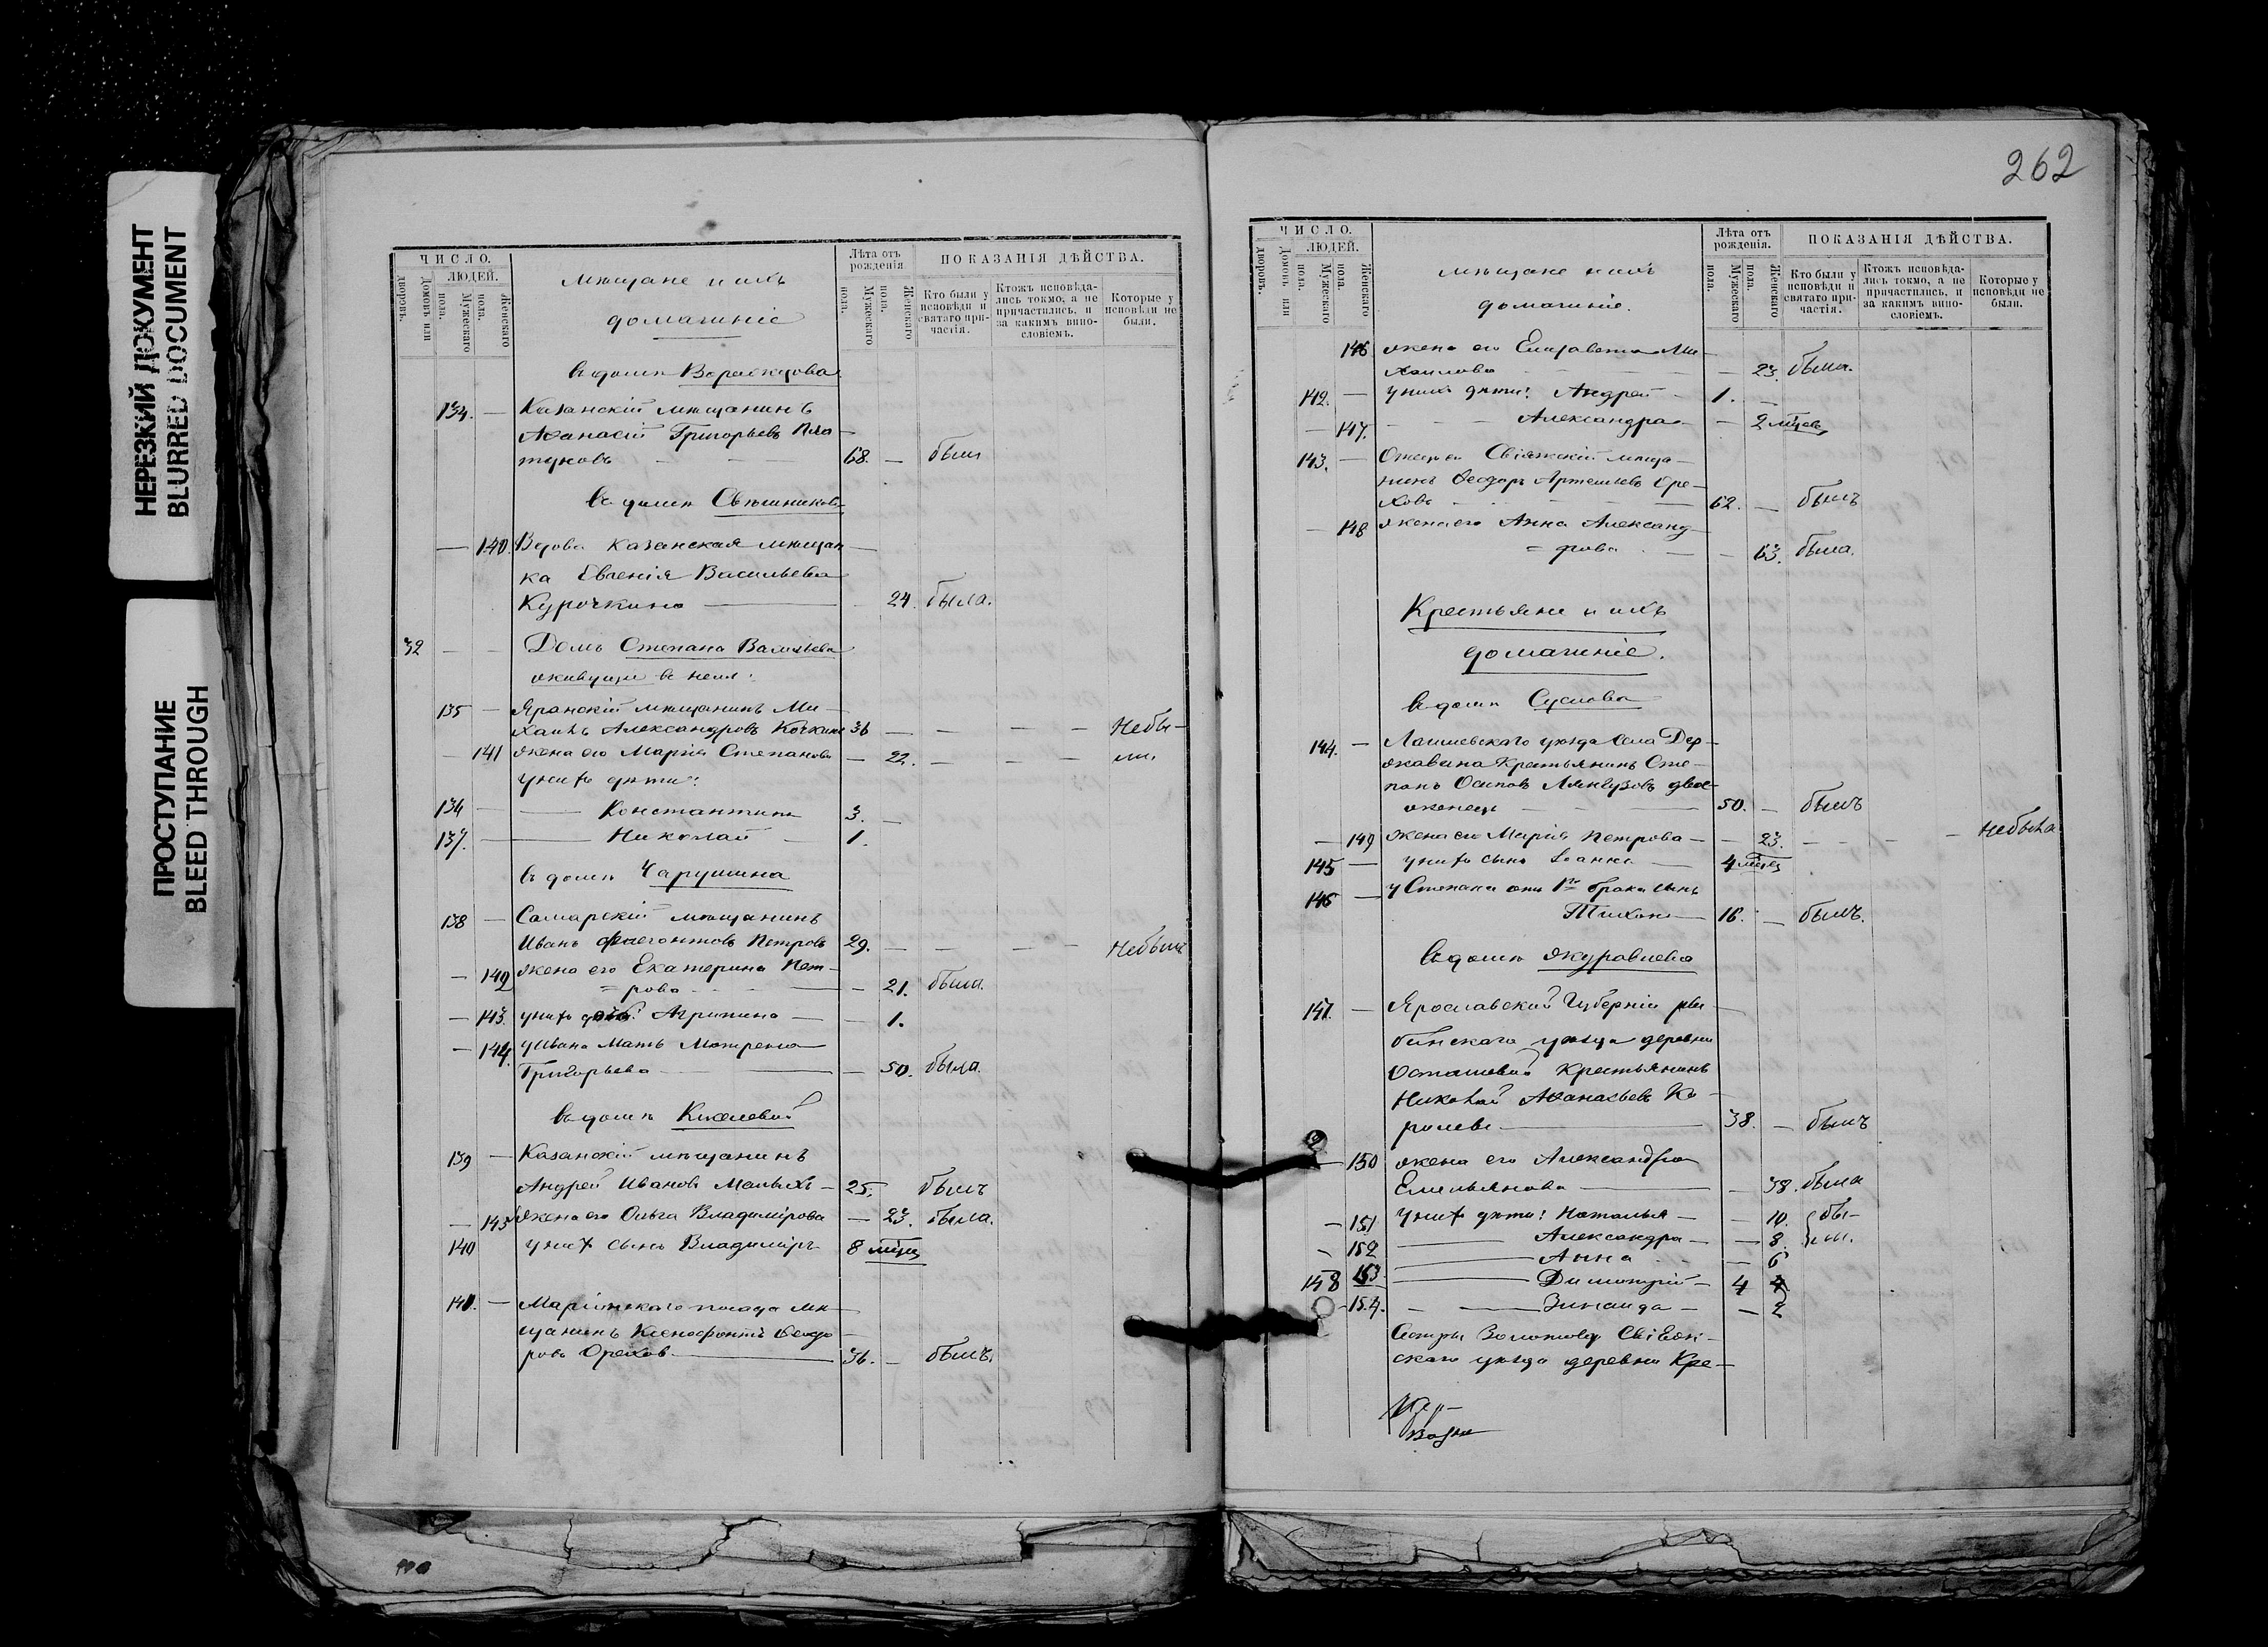 НЕРЕЗКИЙ ДОКУМЕНТ
BLURRED DOCUMENT
ПРОСТУПАНИЕ
BLEED THROUGH
ЧИСЛО.
Домовъ или дворовъ.
ЛЮДЕЙ.
Мужескаго пола.
Женскаго пола.
мѣщане и ихъ
домашніе
Лѣта отъ рожденія.
Мужескаго пола.
Женскаго пола.
ПОКАЗАНІЯ ДѢЙСТВА.
Кто были у исповѣди и святаго причастія.
Ктожъ исповѣдались токмо, а не причастились, и за какимъ винословіемъ.
Которые у исповѣди не были.
въ домѣ
134. — Казанскій мѣщанинъ
Аѳанасій Григорьевъ
68. — былъ
въ домѣ Свѣшникова
— 140. Вдова Казанская мѣщан-
ка Евгенія Васильева
Курочкина — 24. была.
32 — — Домъ Степана Васильева
живущіе въ немъ:
135 — Яранскій мѣщанинъ Ми-
хаилъ Александровъ Кочкинъ 36 — — — — Небы-
— 141 жена его Марія Степанова — 22. — — — ли.
у нихъ дѣти:
136 — Константинъ 3. —
137. — Николай — 1.
въ домѣ Чарушина
138 — Самарскій мѣщанинъ
Иванъ Флегонтовъ Петровъ 29. — — — — Небылъ
— 142 жена его Екатерина Пет-
=рова — 21. была.
— 143. у нихъ дочь Агрипина — — 1.
— 144. у Ивана мать Матрена
Григорьева — — 50. была.
въ домѣ Киселевой
139 — Казанскій мѣщанинъ
Андрей Ивановъ Малыхъ — 25. былъ
— 145 жена его Ольга Владимірова — 23. была.
140 у нихъ сынъ Владиміръ 8 мѣсц
141. — Маріинскаго посада мѣ-
щанинъ Ксенофонтъ Ѳеодо-
ровъ Орехов — 36. — былъ.
262
ЧИСЛО.
Домовъ или дворовъ.
ЛЮДЕЙ.
Мужескаго пола.
Женскаго пола.
мѣщане и ихъ
домашніе.
Лѣта отъ рожденія.
Мужескаго пола.
Женскаго пола.
ПОКАЗАНІЯ ДѢЙСТВА.
Кто были у исповѣди и святаго причастія.
Ктожъ исповѣдались токмо, а не причастились, и за какимъ винословіемъ.
Которые у исповѣди не были.
146 жена его Елизавета Ми-
хаилова — 23. была.
142. — у нихъ дѣти: Андрей — 1. —
— 147. — — Александра — 2 мѣсц
143. — Отецъ Свіяжскій мѣща-
нинъ Ѳеодоръ Артемьевъ Оре-
ховъ — 62. — былъ
— 148 жена его Анна Александ-
=рова — — 63. была.
Крестьяне и ихъ
домашніе.
въ домѣ Суслова
144. — Лаишевскаго уѣзда села Дер-
жавина Крестьянинъ Сте-
панъ Осиповъ двое-
женецъ — 50. — былъ
— 149 жена его Марія Петрова — — 23. — — — Небыла
145 — у нихъ сынъ Іоаннъ — 4 мѣсц
146 — у Степана отъ 1го брака сынъ
Тихонъ — 16. — былъ.
въ домѣ Журавлева
147. — Ярославской Губерніи Ры-
бинскаго уѣзда деревни
Осташевой Крестьянинъ
Николай Аѳанасьевъ Ко-
ролевъ — 38. — былъ
— 150 жена его Александра
Емельянова — — 38. была
— 151 у нихъ дѣти: Наталья — — 10. бы-
— 152 — Александра — — 8. ли.
153 — Анна — 6
148 — Димитрій — 4
— 154. — — Зинаида — — 2
уѣзда деревни Кре-